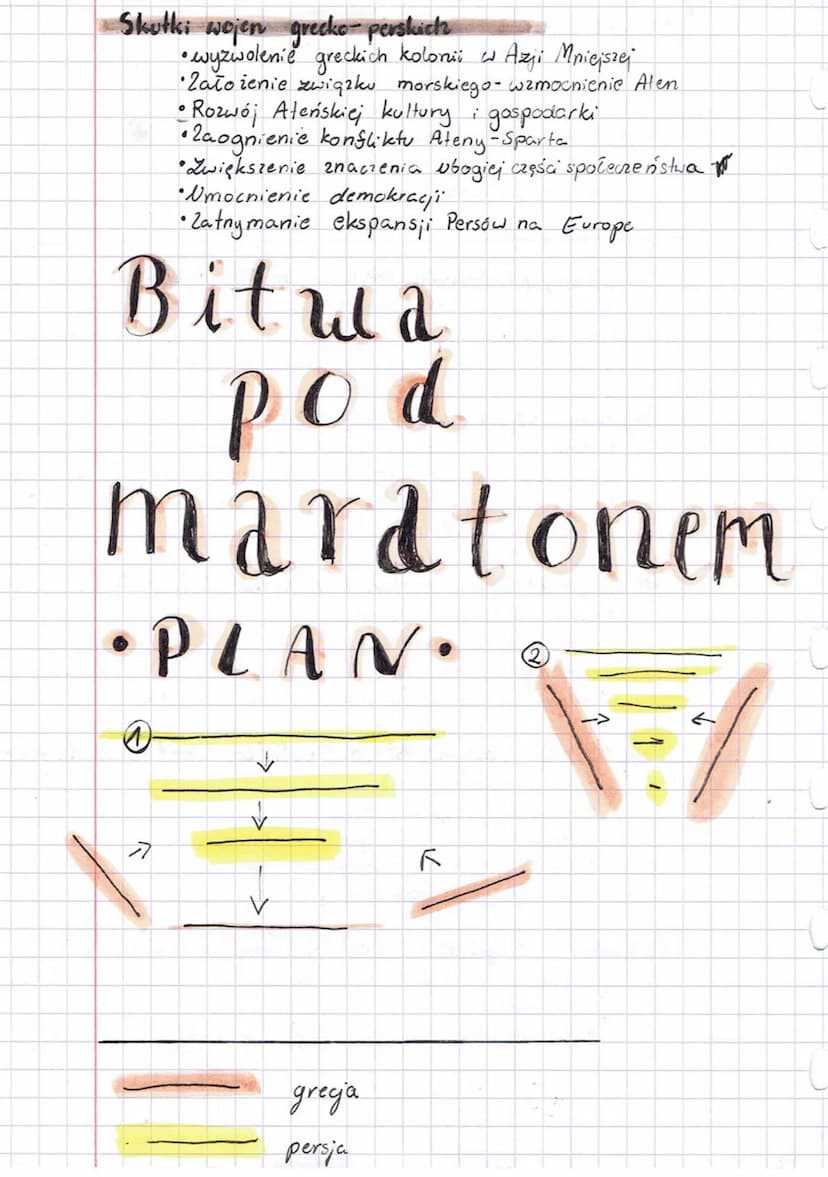 Skutki wojen grecko-perskich
•wyzwolenie greckich kolonii w Azji Mniejszej
•Założenie związku morskiego-wzmocnienie Aten
•Rozwój Ateńskiej kultury i gospodarki
•Zaognienie konfliktu Ateny-Sparta
•Zwiększenie znaczenia ubogiej części społeczeństwa
•Umocnienie demokracji
•Zatrzymanie ekspansji Persów na Europę
Bitwa
pod
maratonem
•PLAN•
2
1
grecja
persja